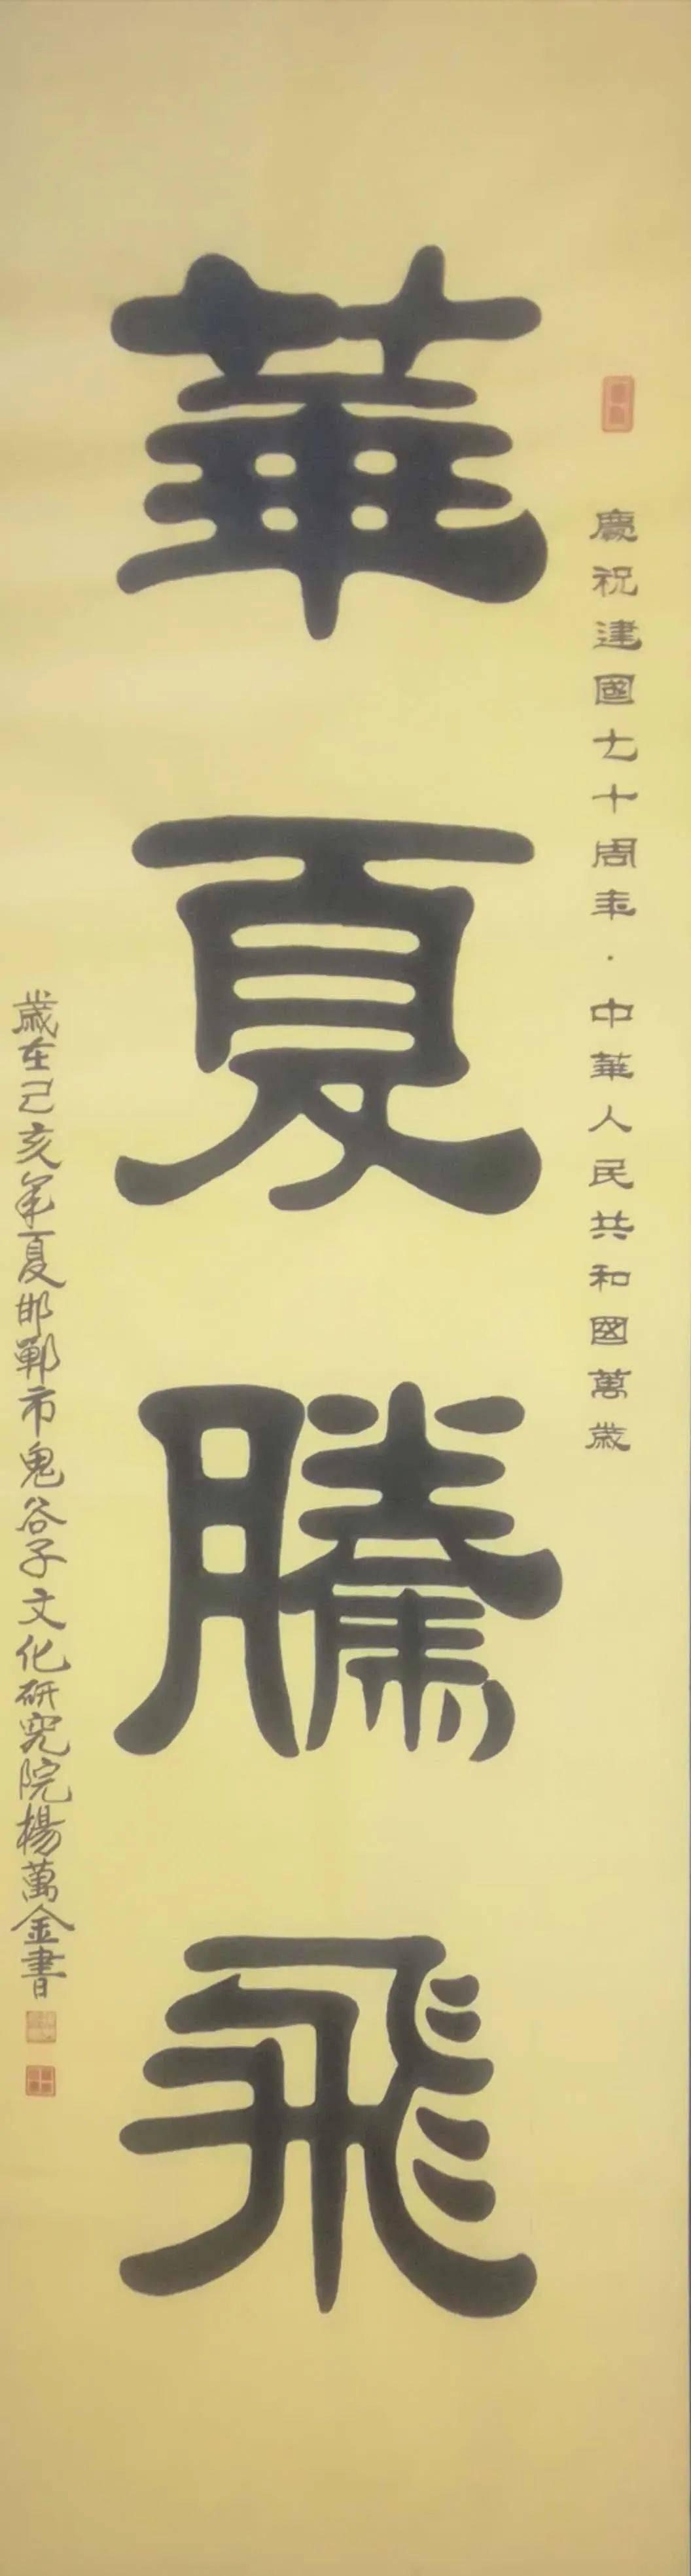 慶祝建國七十周年·中華人民共和國萬歲
華夏騰飛
歲在己亥年夏邯鄲市鬼谷子文化研究院楊萬金書